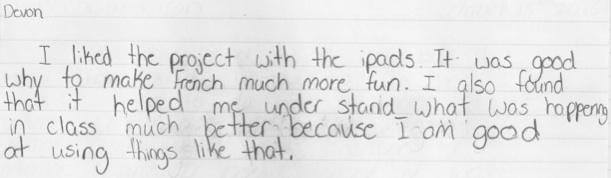 Devon
I liked the project with the ipads. It was good
why to make French much more fun. I also found
that it helped me under stand what was happening
in class much better because I am good
at using things like that.